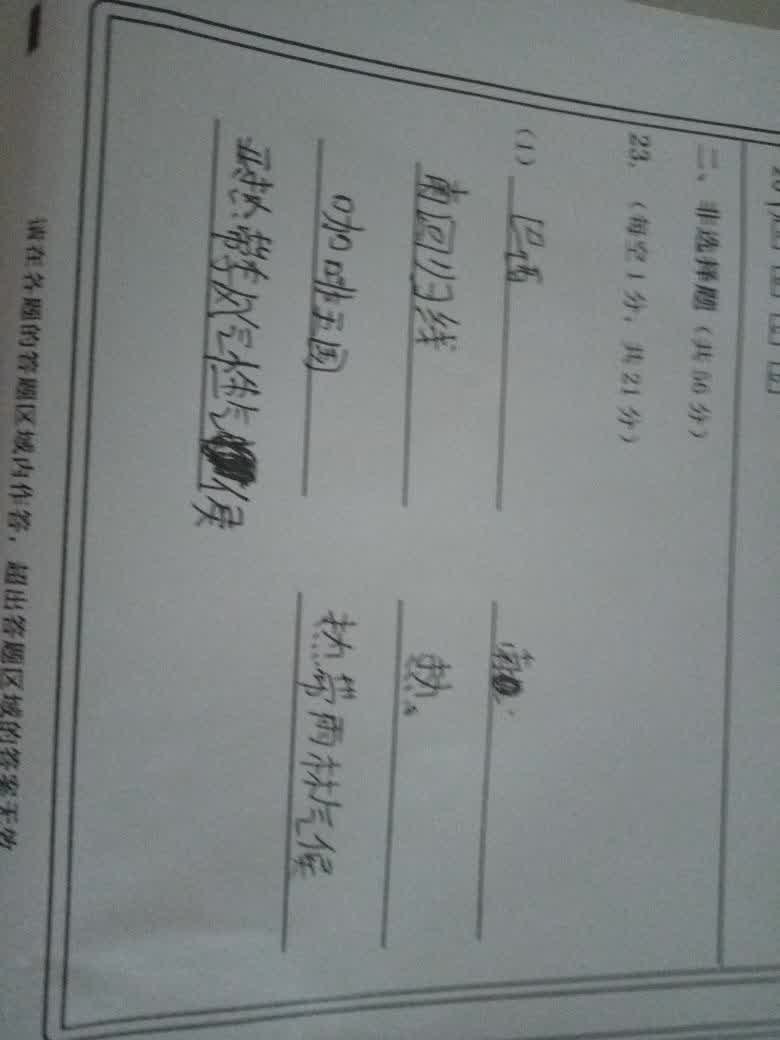 二、非选择题（共56分）
23.（每空1分，共21分）
（1）巴西
南回归线 热
咖啡王国 热带雨林气候
亚热带季风气候
请在各题的答题区域内作答，超出答题区域的答案无效